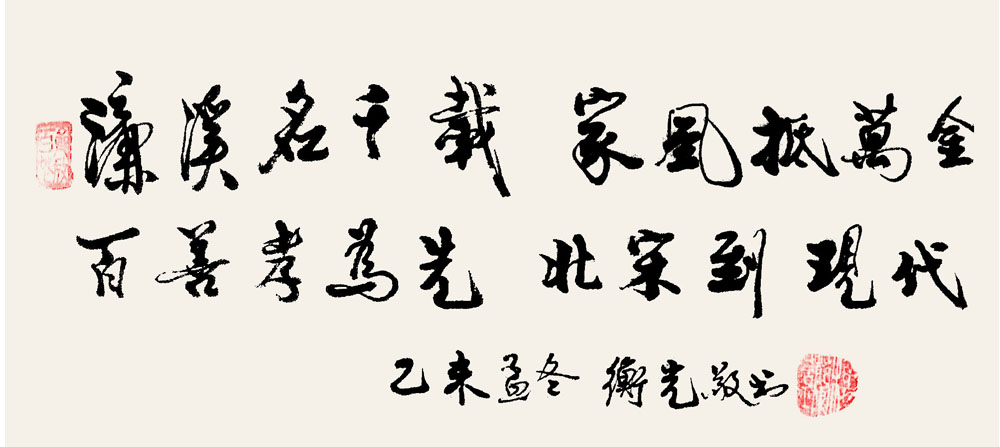 濂溪名千載 家風抵萬金
百善孝為先 北宋到現代
乙未孟冬 衡先敬书